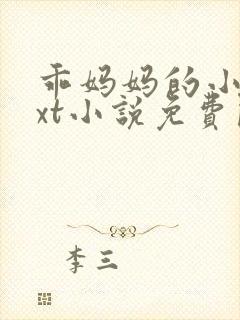 乖妈妈的小
xt小説免費
李三